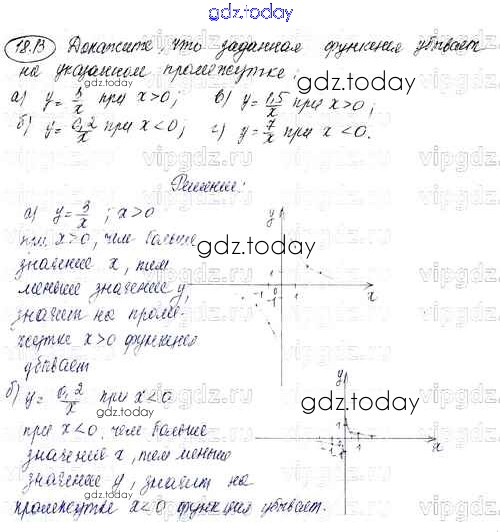 gdz.today
18.13 Докажите, что заданная функция убывает
на указанном промежутке:
gdz.today
а) y = 3/x при x>0; в) y = 1,5/x при x>0;
б) y = 0,2/x при x<0; г) y = 7/x при x<0.
Решение:
а) y = 3/x ; x>0
при x>0, чем больше
значение x, тем
меньше значение y,
значит на проме-
жутке x>0 функция
убывает
y
gdz.today
-1 0 1
-1
x
б) y = 0,2/x при x<0
при x<0, чем больше
значение x, тем меньше
значение y, значит на
промежутке x<0 функция убывает.
gdz.today
y
1
-1 1
-1
x
gdz.today
vipgdz.ru